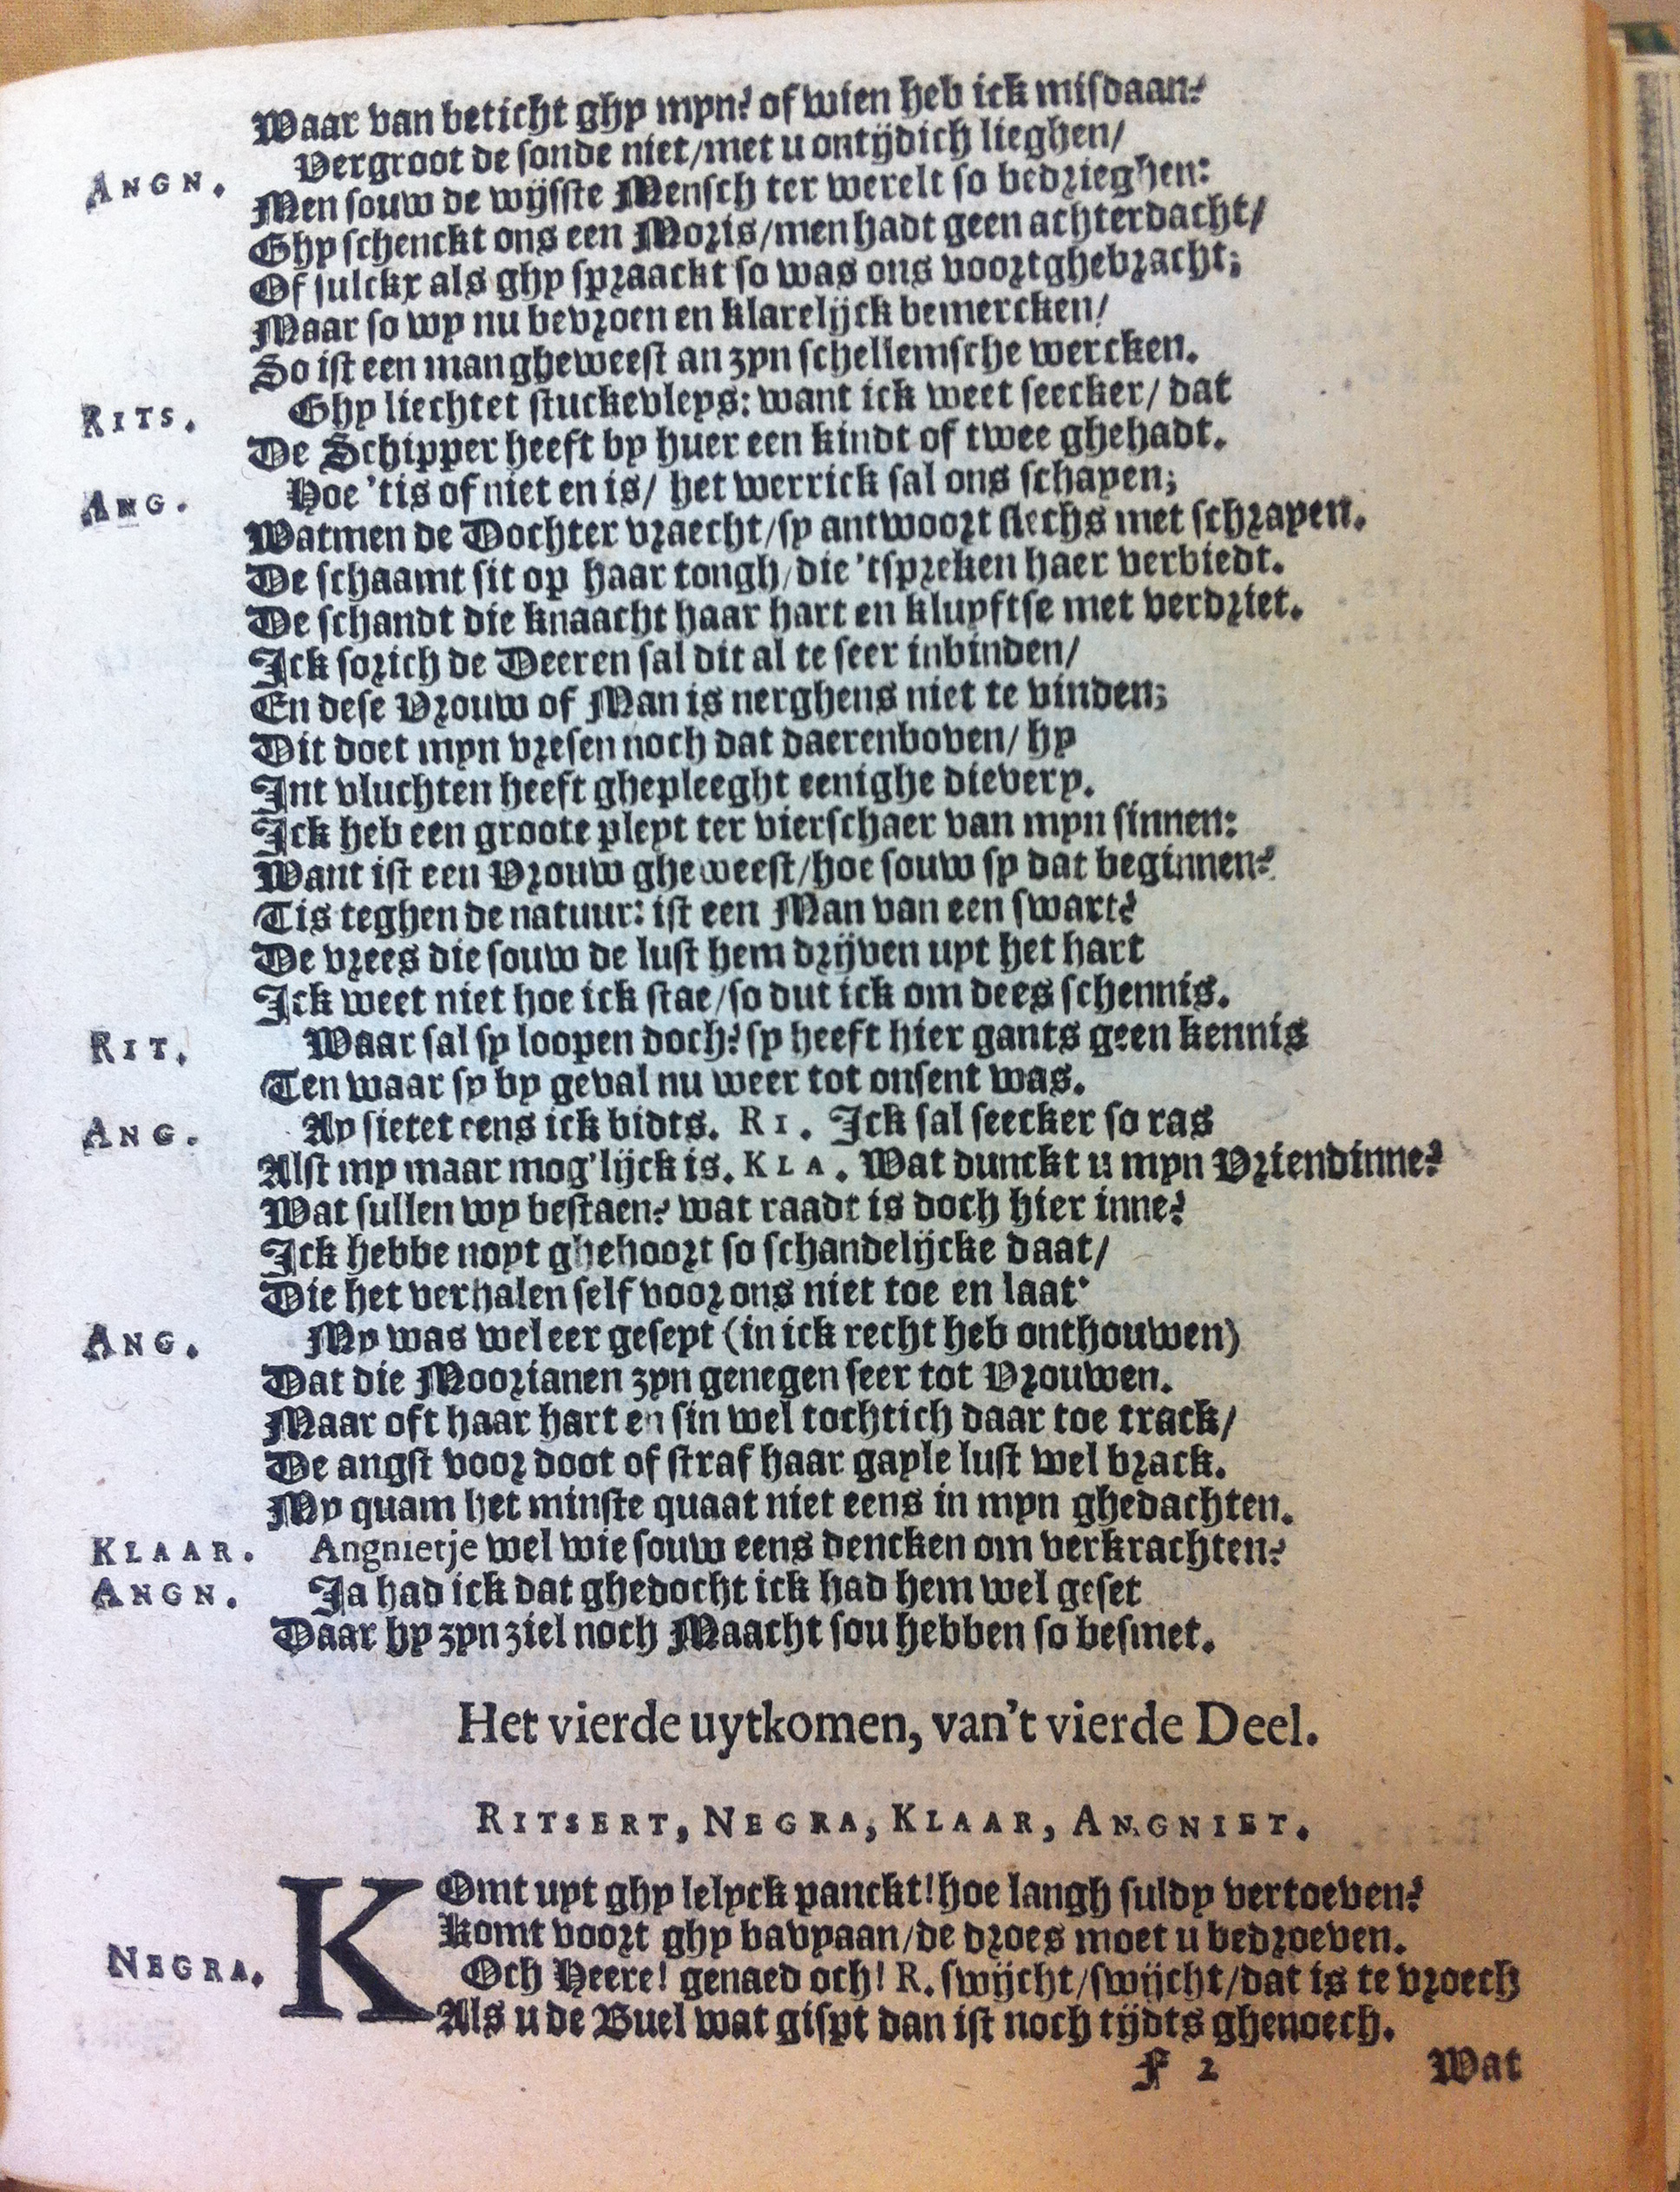 Waar van beticht ghy myn? of wien heb ick misdaan?
ANGN. Vergroot de sonde niet/met u ontijdich lieghen/
Men souw de wijsste Mensch ter werelt so bedrieghen:
Ghy schenckt ons een Moris/men hadt geen achterdacht/
Of sulckx als ghy spraackt so was ons voortghebracht;
Maar so wy nu bevroen en klarelijck bemercken/
So ist een man gheweest an zyn schellemsche wercken.
RITS. Ghy liechtet stuckevleys: want ick weet seecker/ dat
De Schipper heeft by huer een kindt of twee ghehadt.
ANG. Hoe 'tis of niet en is/ het werrick sal ons schapen;
Watmen de Dochter vraecht/sy antwoort slechs met schrapen.
De schaamt sit op haar tongh/die 'tspreken haer verbiedt.
De schandt die knaacht haar hart en kluyftse met verdriet.
Ick sorich de Deeren sal dit al te seer inbinden/
En dese Vrouw of Man is nerghens niet te vinden;
Dit doet myn vresen noch dat daerenboven/ hy
Int vluchten heeft ghepleeght eenighe dievery.
Ick heb een groote pleyt ter vierschaer van myn sinnen:
Want ist een Vrouw gheweest/hoe souw sy dat beginnen?
Tis teghen de natuur: ist een Man van een swart?
De vrees die souw de lust hem drijven uyt het hart
Ick weet niet hoe ick stae/so dut ick om dees schennis.
RIT. Waar sal sy loopen doch? sy heeft hier gants geen kennis
Ten waar sy by geval nu weer tot onsent was.
ANG. Ay sietet eens ick bidts. RI. Ick sal seecker so ras
Alst my maar mog'lijck is. KLA. Wat dunckt u myn Vriendinne?
Wat sullen wy bestaen? wat raadt is doch hier inne?
Ick hebbe noyt ghehoort so schandelijcke daat/
Die het verhalen self voor ons niet toe en laat.
ANG. My was wel eer geseyt (in ick recht heb onthouwen)
Dat die Moorianen zyn genegen seer tot Vrouwen.
Maar oft haar hart en sin wel tochtich daar toe track/
De angst voor doot of straf haar gayle lust wel brack.
My quam het minste quaat niet eens in myn ghedachten.
KLAAR. Angnietje wel wie souw eens dencken om verkrachten?
ANGN. Ja had ick dat ghedocht ick had hem wel geset
Daar hy zyn ziel noch Maacht sou hebben so besmet.
Het vierde uytkomen, van't vierde Deel.
RITSERT, NEGRA, KLAAR, ANGNIET.
KOmt uyt ghy lelyck panckt! hoe langh suldy vertoeven?
Komt voort ghy bavyaan/de droes moet u bedroeven.
NEGRA. Och Heere! genaed och! R. swijcht/swijcht/dat is te vroech
Als u de Buel wat gispt dan ist noch tijdts ghenoech.
F 2 Wat